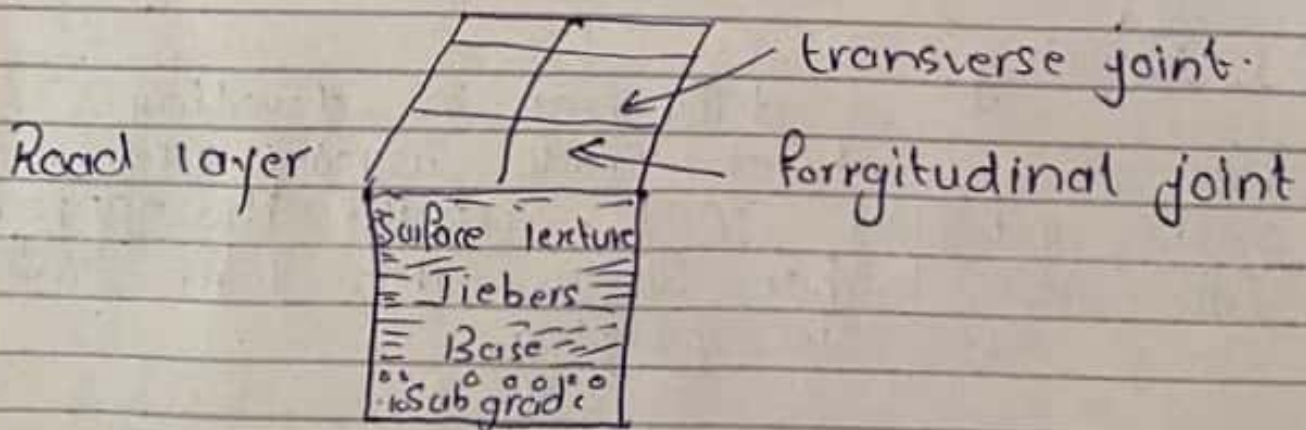 transverse joint.
Road layer
forrgitudinal joint
Surface Texture
Tiebers
Base
Subgrade